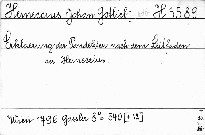 Heineccius Johann Gottlieb H 4589
Erklaerung der Pandekten nach dem Leitfaden
des Heineccius.
Wien 1796 Gassler 8° 540 [+12]